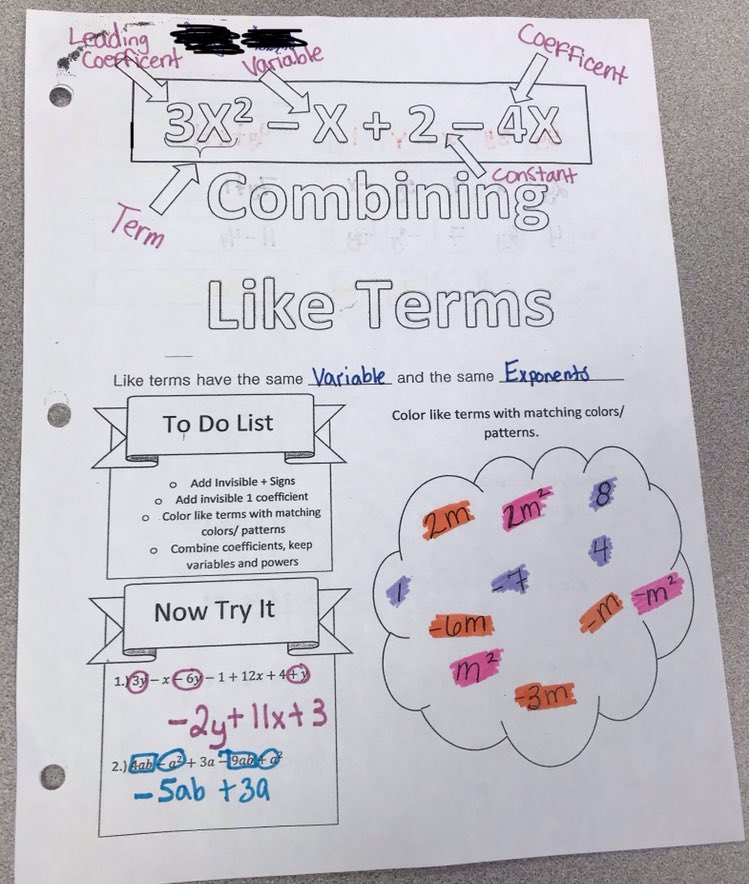 Leading
Coefficent
Variable
Coefficent
3X² − X + 2 − 4X
Constant
Term
Combining
Like Terms
Like terms have the same Variable and the same Exponents
To Do List
○ Add Invisible + Signs
○ Add invisible 1 coefficient
○ Color like terms with matching
colors/ patterns
○ Combine coefficients, keep
variables and powers
Now Try It
1.) 3y − x − 6y − 1 + 12x + 4 + y
-2y+11x+3
2.) 4ab − a² + 3a − 9ab + a²
-5ab +3a
Color like terms with matching colors/
patterns.
2m
2m²
8
4
1
-7
-m
-m²
-6m
m²
-3m